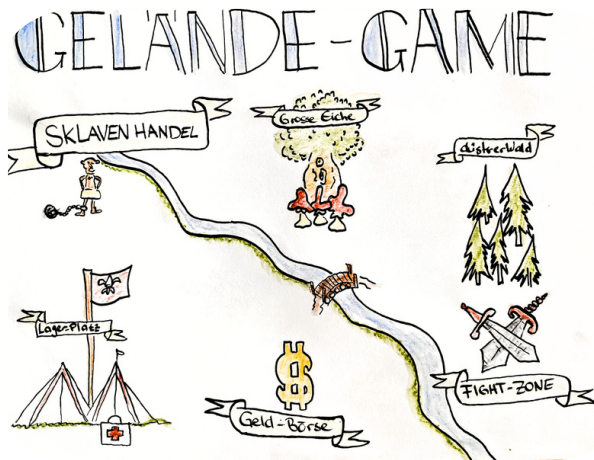 GELÄNDE-GAME
SKLAVENHANDEL
Grosse Eiche
düstrerWald
Lager-Platz
$
Geld-Börse
FIGHT-ZONE